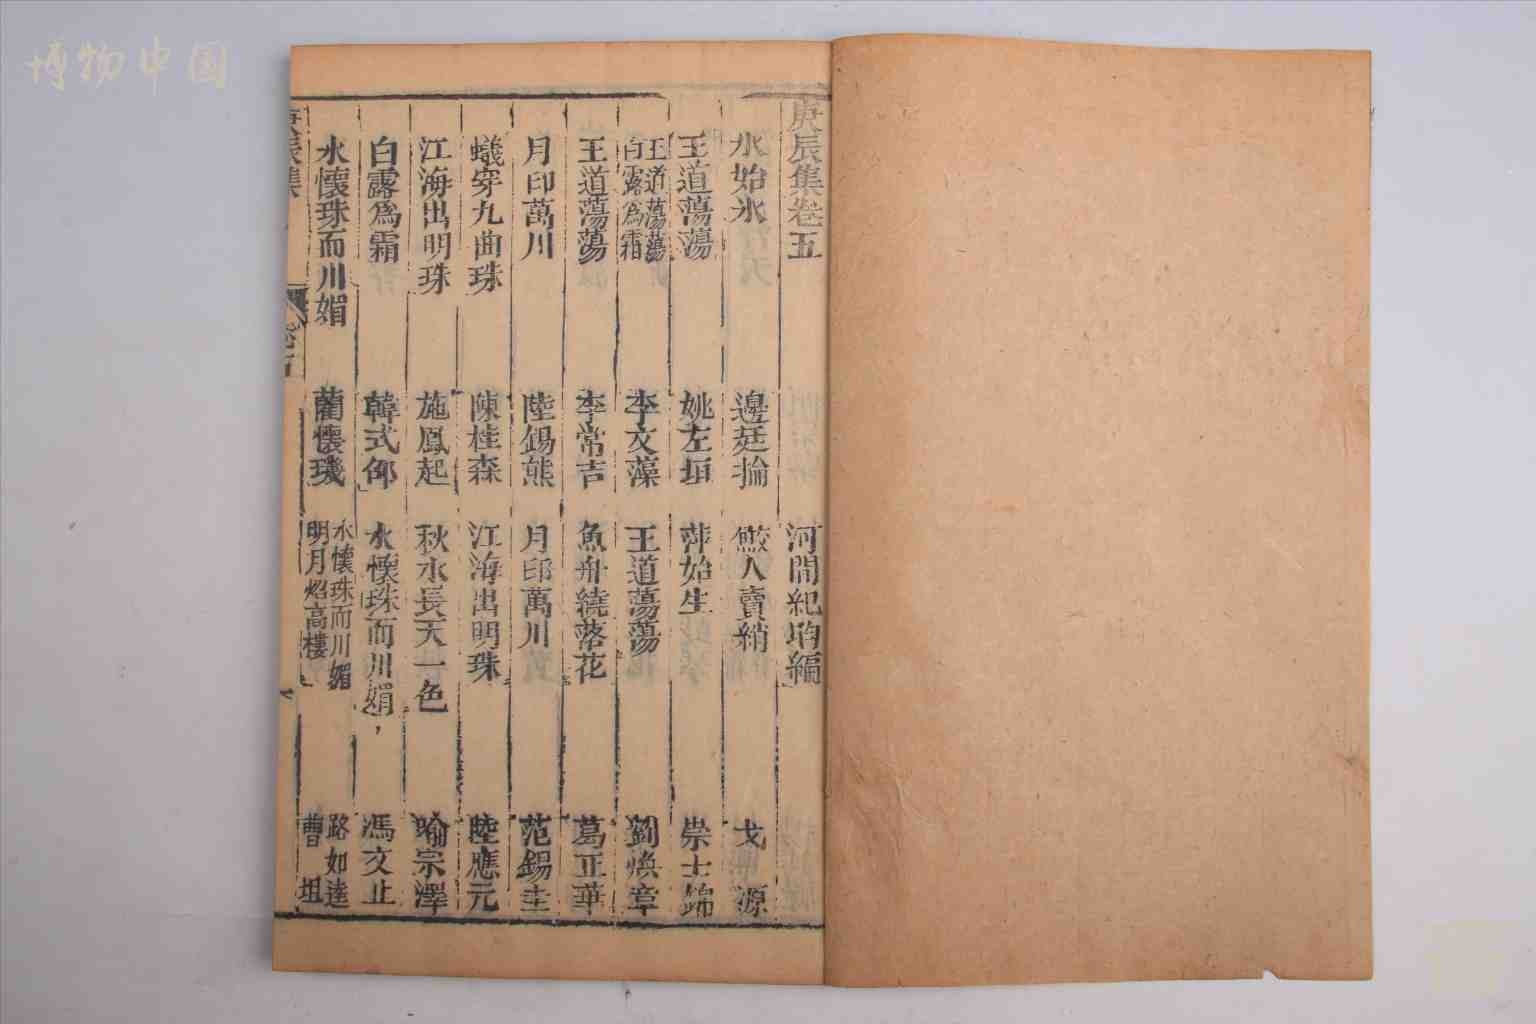 博物中国
庚辰集卷五
河間紀昀編
水始氷　邊廷掄　鮫人賣綃　戈源
王道蕩蕩　姚左垣　萍始生　崇士錦
王道蕩蕩 白露為霜　李文藻　王道蕩蕩　劉煥章
王道蕩蕩　李常吉　魚舟繞落花　葛正華
月印萬川　陸錫熊　月印萬川　范錫圭
蟻穿九曲珠　陳桂森　江海出明珠　陸應元
江海出明珠　施鳳起　秋水長天一色　喻宗澤
白露為霜　韓式仰　水懷珠而川媚　馮文止
水懷珠而川媚　藺懷璣　水懷珠而川媚 明月炤高樓　路如逵 曹坦
庚辰集
卷五